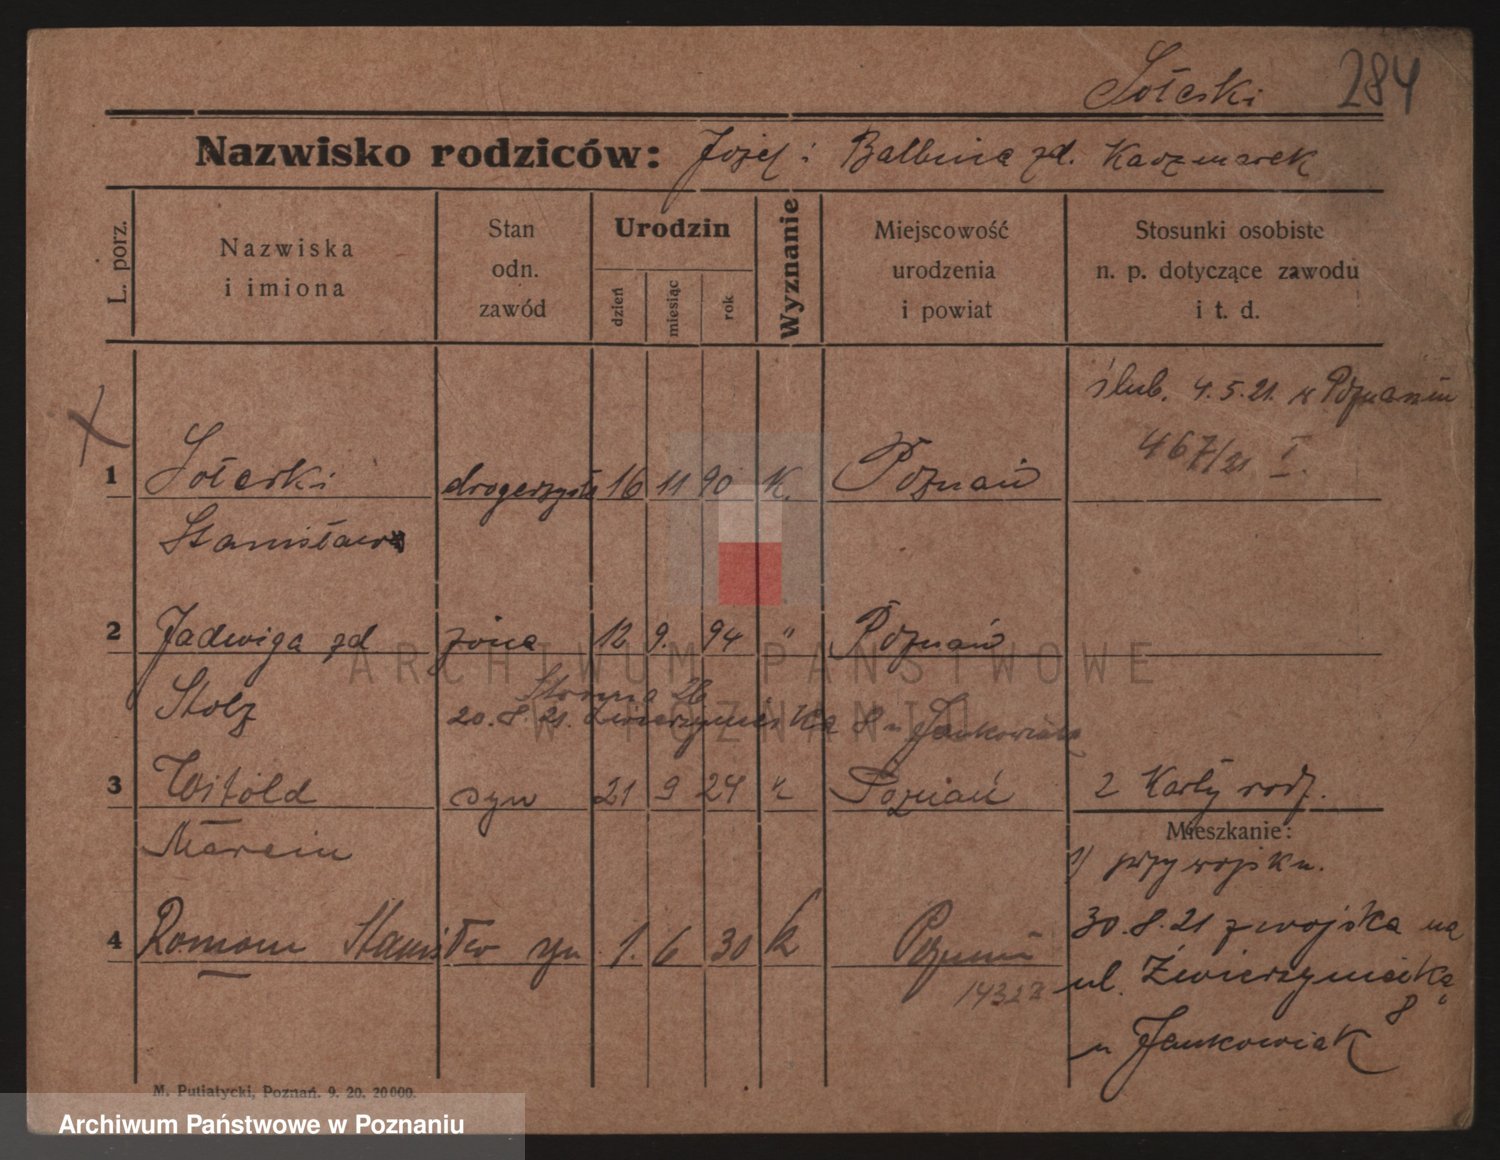 Sołecki 284
Nazwisko rodziców: Józef i Balbina zd. Kaczmarek
L. porz.
Nazwiska
i imiona
Stan
odn.
zawód
Urodzin
dzień
miesiąc
rok
Wyznanie
Miejscowość
urodzenia
i powiat
Stosunki osobiste
n. p. dotyczące zawodu
i t. d.
ślub. 4.5.21. w Poznaniu
467/21 I.
1 Sołecki drogerzysta 16 11 90 k. Poznań
Stanisław
2 Jadwiga zd żona 12 9. 94 " Poznań
Stolz
20.8.21. Zwierzyniecka 8 u Jankowiak
3 Witold syn 21 9 24 k Poznań 2 Karty rodz.
Marcin
Mieszkanie:
1) przy wojsku.
4 Roman Stanisław syn 1. 6 30 k Poznań
14322
30.8.21 z wojska na
ul. Zwierzyniecką
8
u Jankowiak
M. Putiatycki, Poznań. 9. 20. 20000.
ARCHIWUM PAŃSTWOWE
W POZNANIU
Archiwum Państwowe w Poznaniu